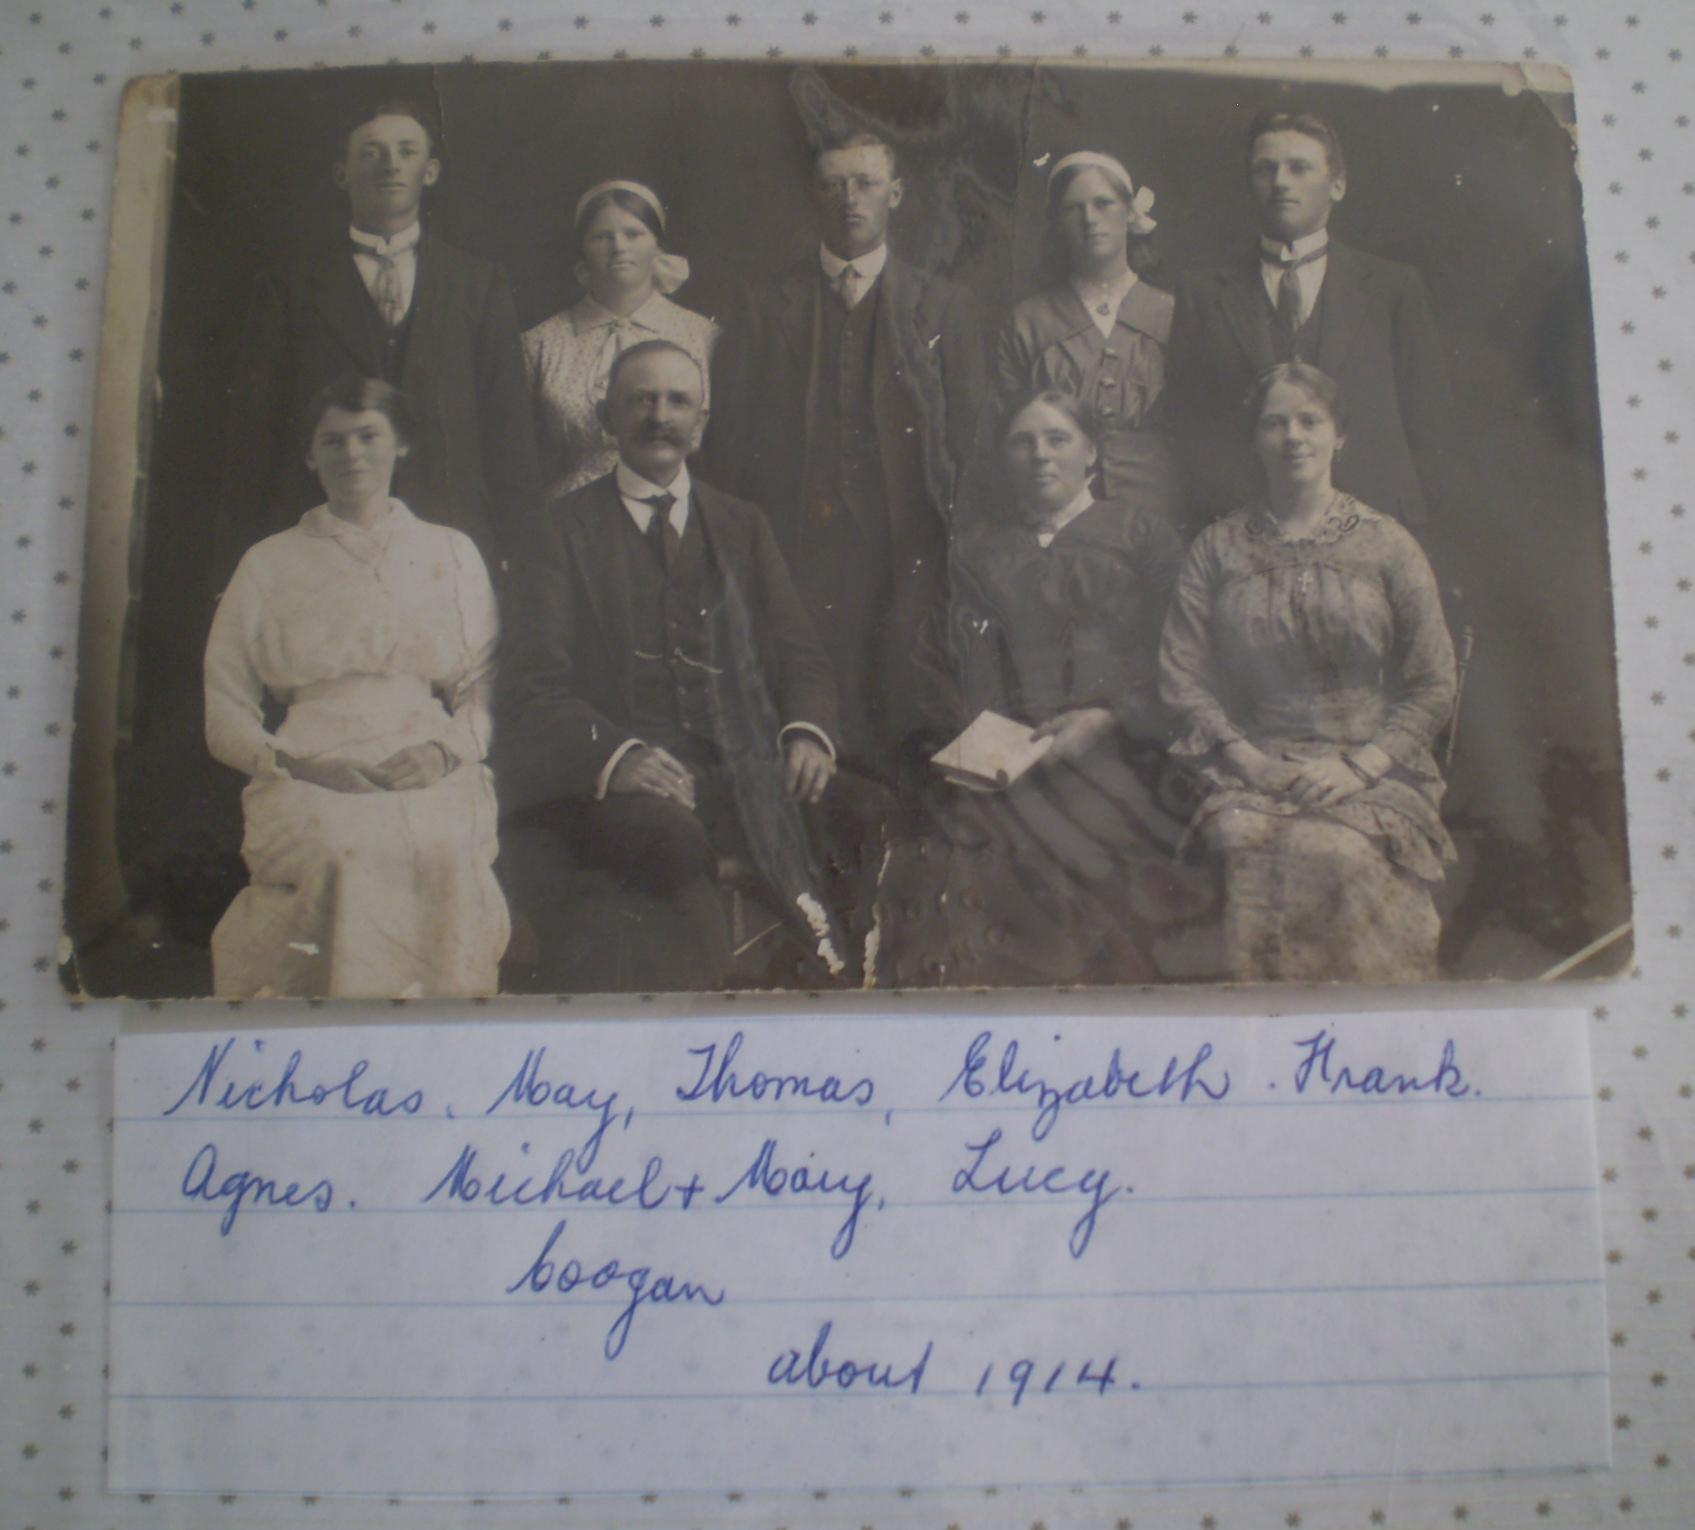 Nicholas. May, Thomas, Elizabeth. Frank.
Agnes. Michael + Mary, Lucy.
Coogan
about 1914.